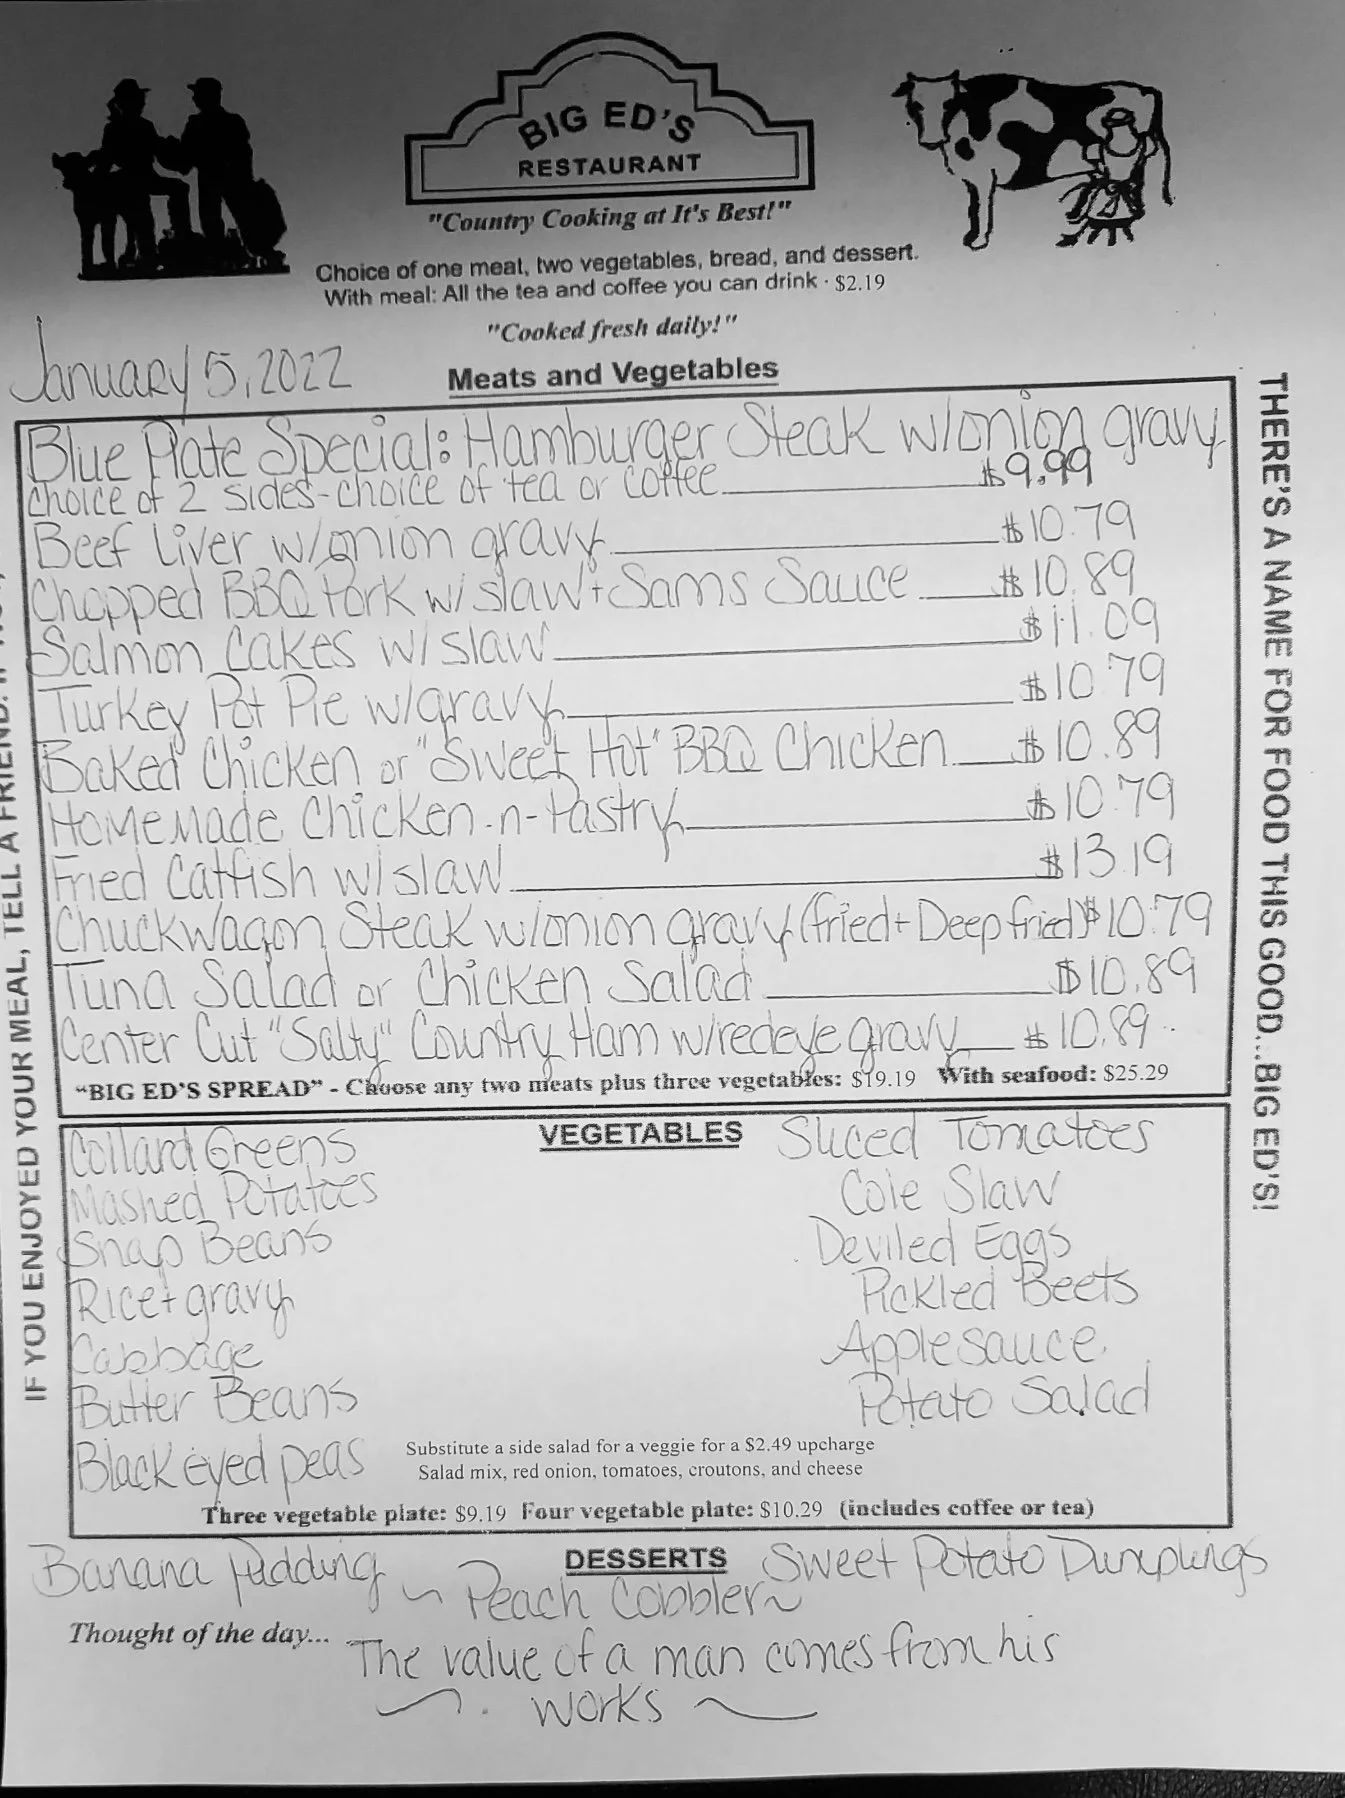 BIG ED'S
RESTAURANT
"Country Cooking at It's Best!"
Choice of one meat, two vegetables, bread, and dessert.
With meal: All the tea and coffee you can drink · $2.19
"Cooked fresh daily!"
January 5, 2022
Meats and Vegetables
Blue Plate Special: Hamburger Steak w/onion gravy
choice of 2 sides-choice of tea or coffee $9.99
Beef Liver w/onion gravy $10.79
Chopped BBQ Pork w/slaw + Sams Sauce $10.89
Salmon Cakes w/slaw $11.09
Turkey Pot Pie w/gravy $10.79
Baked Chicken or "Sweet Hot" BBQ Chicken $10.89
Homemade Chicken-n-Pastry $10.79
Fried Catfish w/slaw $13.19
Chuckwagon Steak w/onion gravy (fried + Deep fried) $10.79
Tuna Salad or Chicken Salad $10.89
Center Cut "Salty" Country Ham w/redeye gravy $10.89
"BIG ED'S SPREAD" - Choose any two meats plus three vegetables: $19.19 With seafood: $25.29
VEGETABLES
Collard Greens
Mashed Potatoes
Snap Beans
Rice + gravy
Cabbage
Butter Beans
Black eyed peas
Sliced Tomatoes
Cole Slaw
Deviled Eggs
Pickled Beets
Applesauce
Potato Salad
Substitute a side salad for a veggie for a $2.49 upcharge
Salad mix, red onion, tomatoes, croutons, and cheese
Three vegetable plate: $9.19 Four vegetable plate: $10.29 (includes coffee or tea)
DESSERTS
Banana Pudding ~ Peach Cobbler ~ Sweet Potato Dumplings
Thought of the day... The value of a man comes from his
works
IF YOU ENJOYED YOUR MEAL, TELL A FRIEND. IF
THERE'S A NAME FOR FOOD THIS GOOD...BIG ED'S!